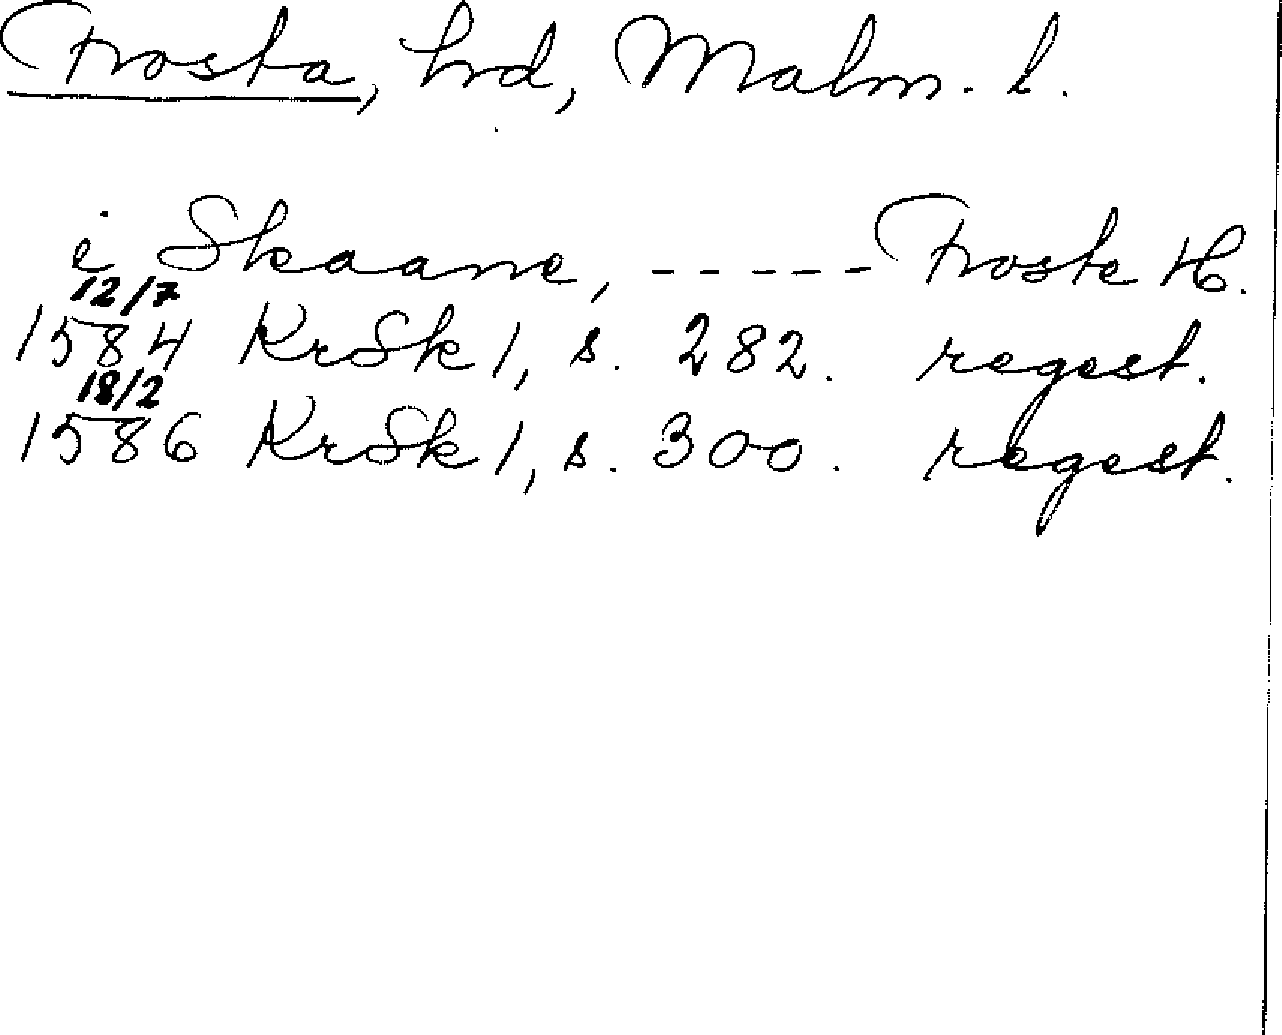 Frosta, hrd, Malm. l.
i Skaane, ----- Froste H.
12/7
1584 KrSk 1, s. 282. regest.
18/2
1586 KrSk 1, s. 300. regest.